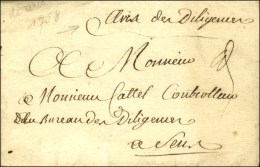 1758
Avis des Diligences
A Monsieur
Monsieur Cattel Controlleur
du Bureau des Diligences
a Sens